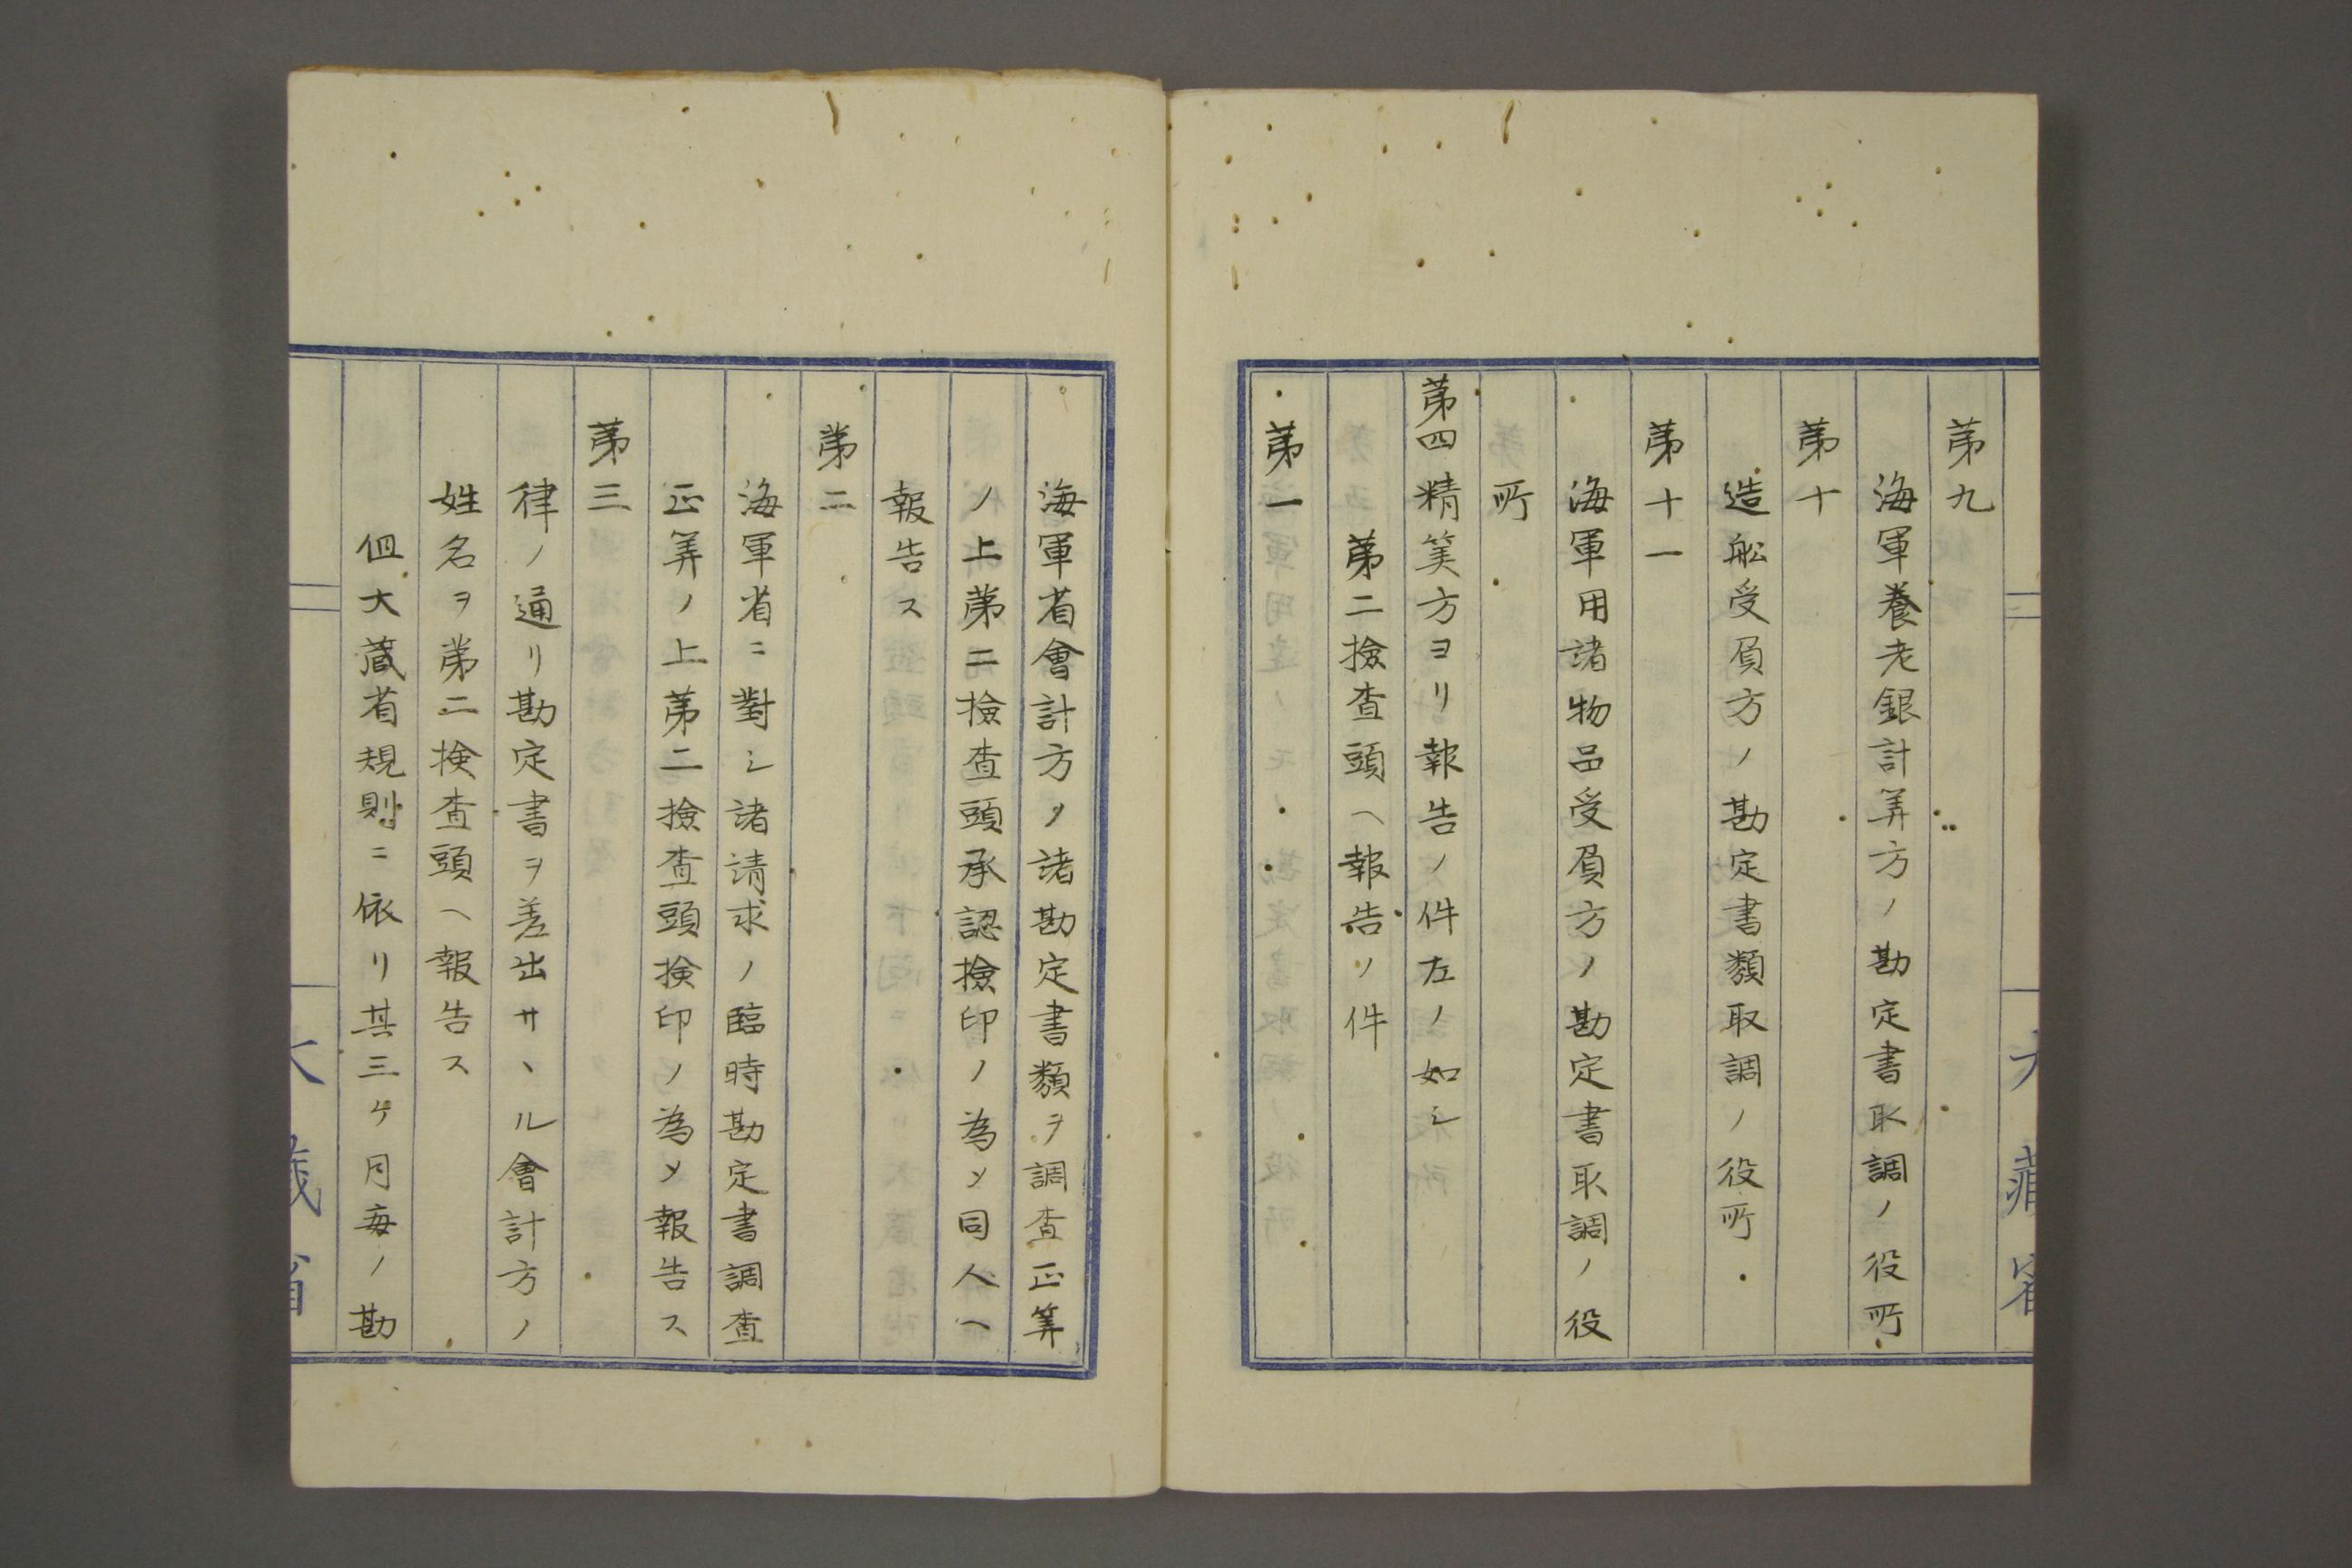 第九
海軍養老銀計筭方ノ勘定書取調ノ役所
第十
造舩受負方ノ勘定書類取調ノ役所
第十一
海軍用諸物品受負方ノ勘定書取調ノ役
所
第四精筭方ヨリ報告ノ件左ノ如シ
第二撿查頭ヘ報告ノ件
第一
海軍省會計方ノ諸勘定書類ヲ調查正筭
ノ上第二撿查頭承認撿印ノ為メ同人ヘ
報告ス
第二
海軍省ニ對シ諸請求ノ臨時勘定書調查
正筭ノ上第二撿查頭検印ノ為メ報告ス
第三
律ノ通リ勘定書ヲ差出サヽル會計方ノ
姓名ヲ第二検查頭ヘ報告ス
但大蔵省規則ニ依リ其三ケ月毎ノ勘
大藏省